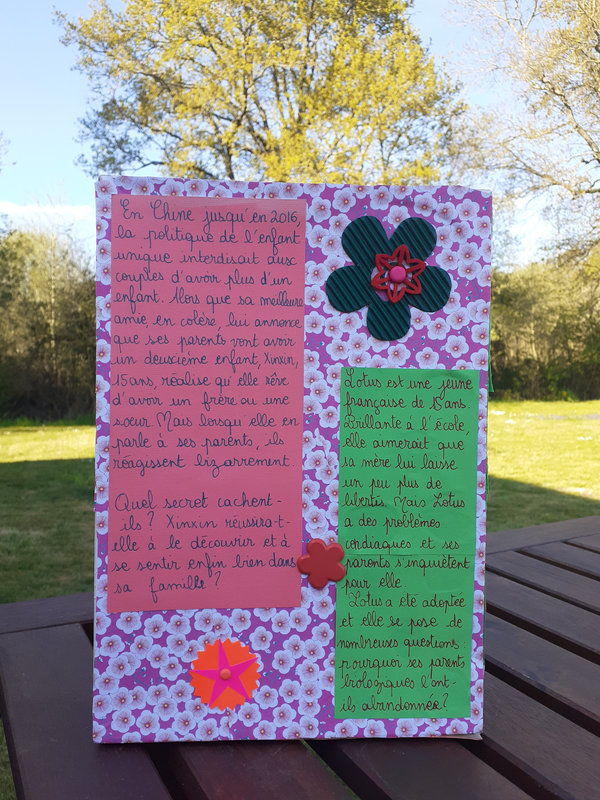 En Chine jusqu'en 2016,
la politique de l'enfant
unique interdisait aux
couples d'avoir plus d'un
enfant. Alors que sa meilleure
amie, en colère, lui annonce
que ses parents vont avoir
un deuxième enfant, Xinxin,
15 ans, réalise qu'elle rêve
d'avoir un frère ou une
soeur. Mais lorsqu'elle en
parle à ses parents, ils
réagissent bizarrement.
Quel secret cachent-
ils ? Xinxin réussira-t-
elle à le découvrir et à
se sentir enfin bien dans
sa famille ?
Lotus est une jeune
française de 15 ans.
Brillante à l'école,
elle aimerait que
sa mère lui laisse
un peu plus de
libertés. Mais Lotus
a des problèmes
cardiaques et ses
parents s'inquiètent
pour elle.
Lotus a été adoptée
et elle se pose de
nombreuses questions :
pourquoi ses parents
biologiques l'ont-
ils abandonnée ?